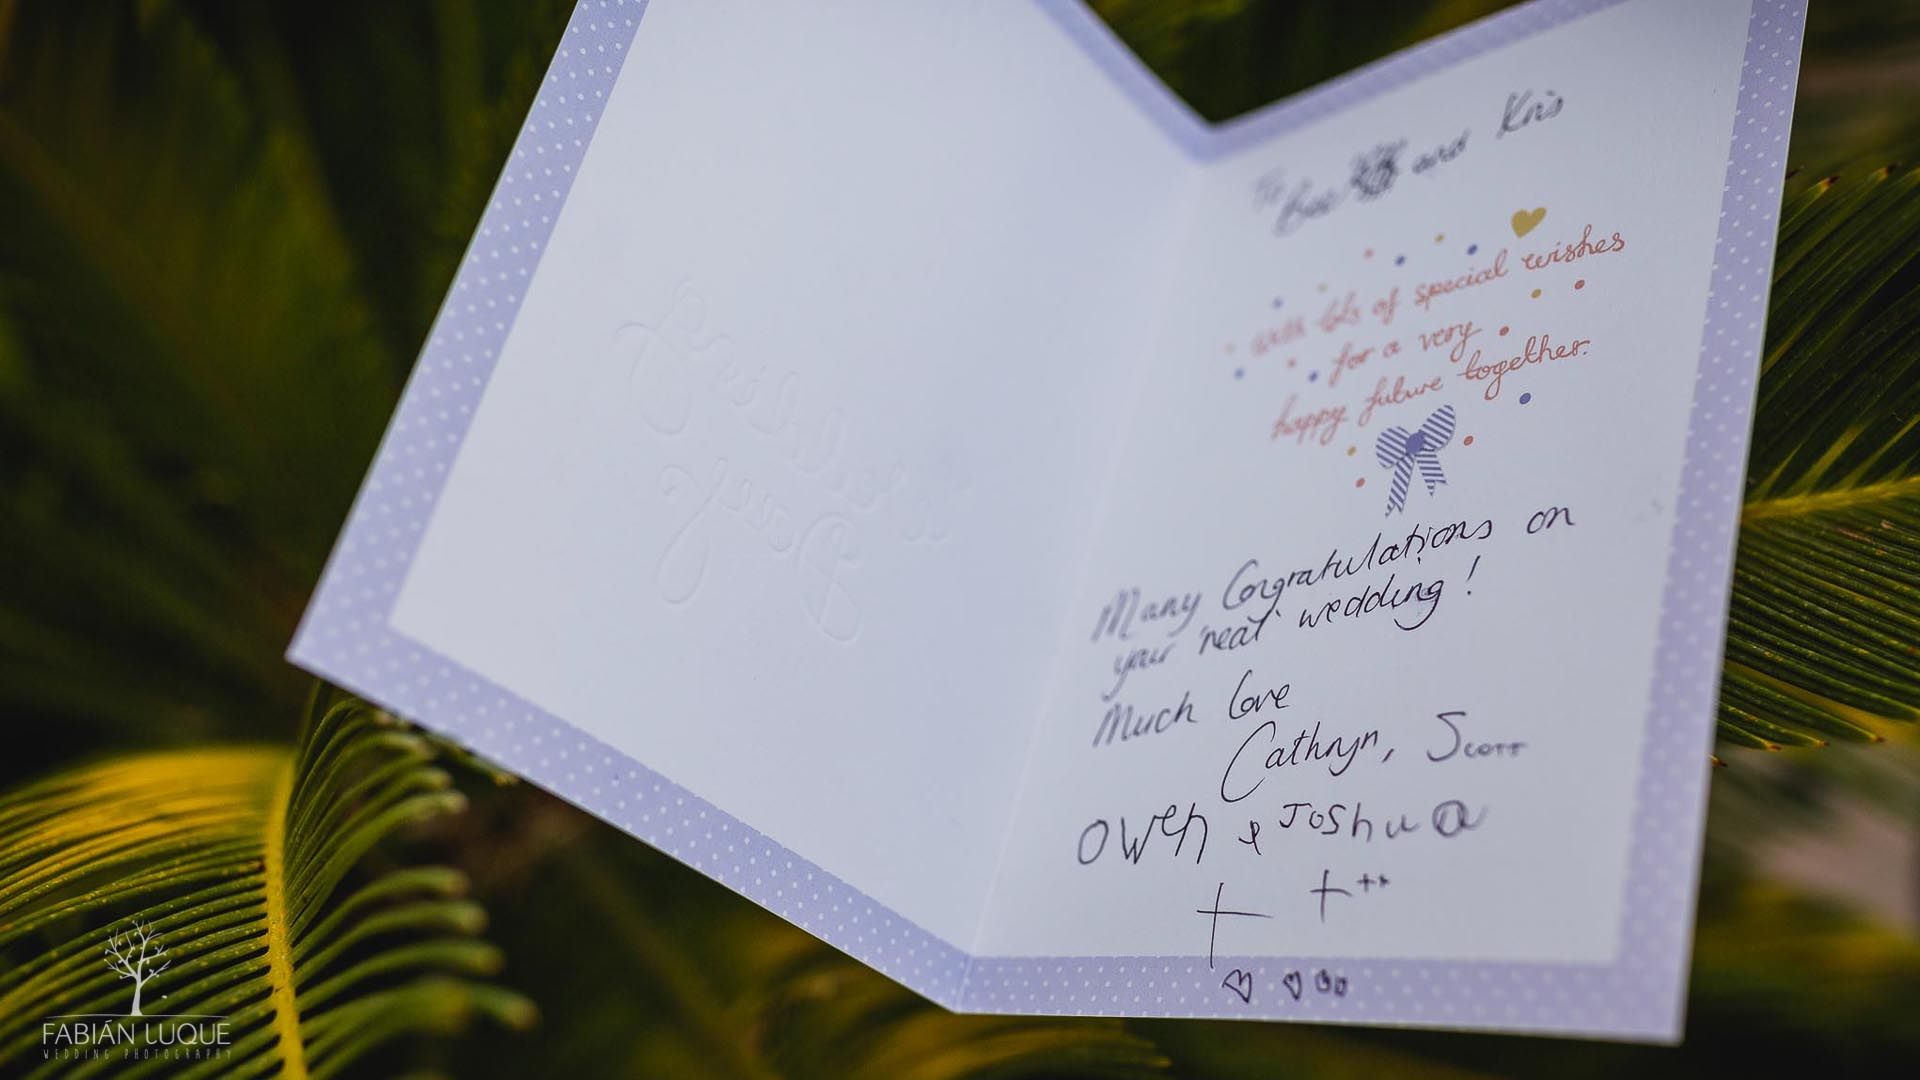 To Bec and Kris
with lots of special wishes
for a very
happy future together.
Many Congratulations on
your 'real' wedding!
Much Love
Cathryn, Scott
Owen & Joshua
FABIÁN LUQUE
WEDDING PHOTOGRAPHY